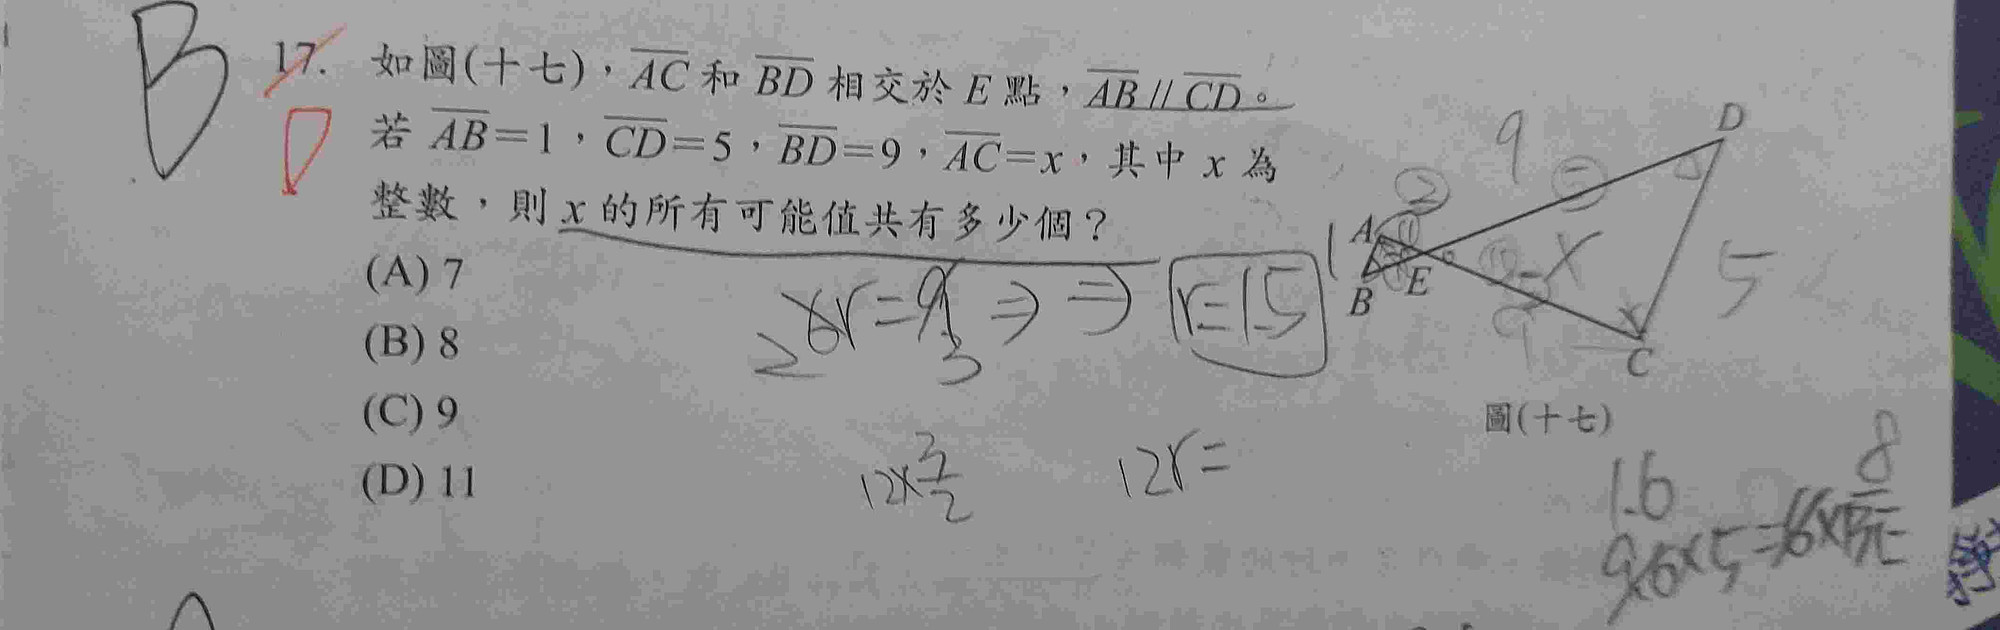 B
17. 如圖(十七)，AC 和 BD 相交於 E 點，AB // CD。
D
若 AB=1，CD=5，BD=9，AC=x，其中 x 為
整數，則 x 的所有可能值共有多少個？
(A) 7
(B) 8
(C) 9
(D) 11
6r=9 ⇒ ⇒ r=1.5
2 3
12×3/2 12r=
9
D
2
1 A
x 5
B E
9
C
圖(十七)
1.6
8